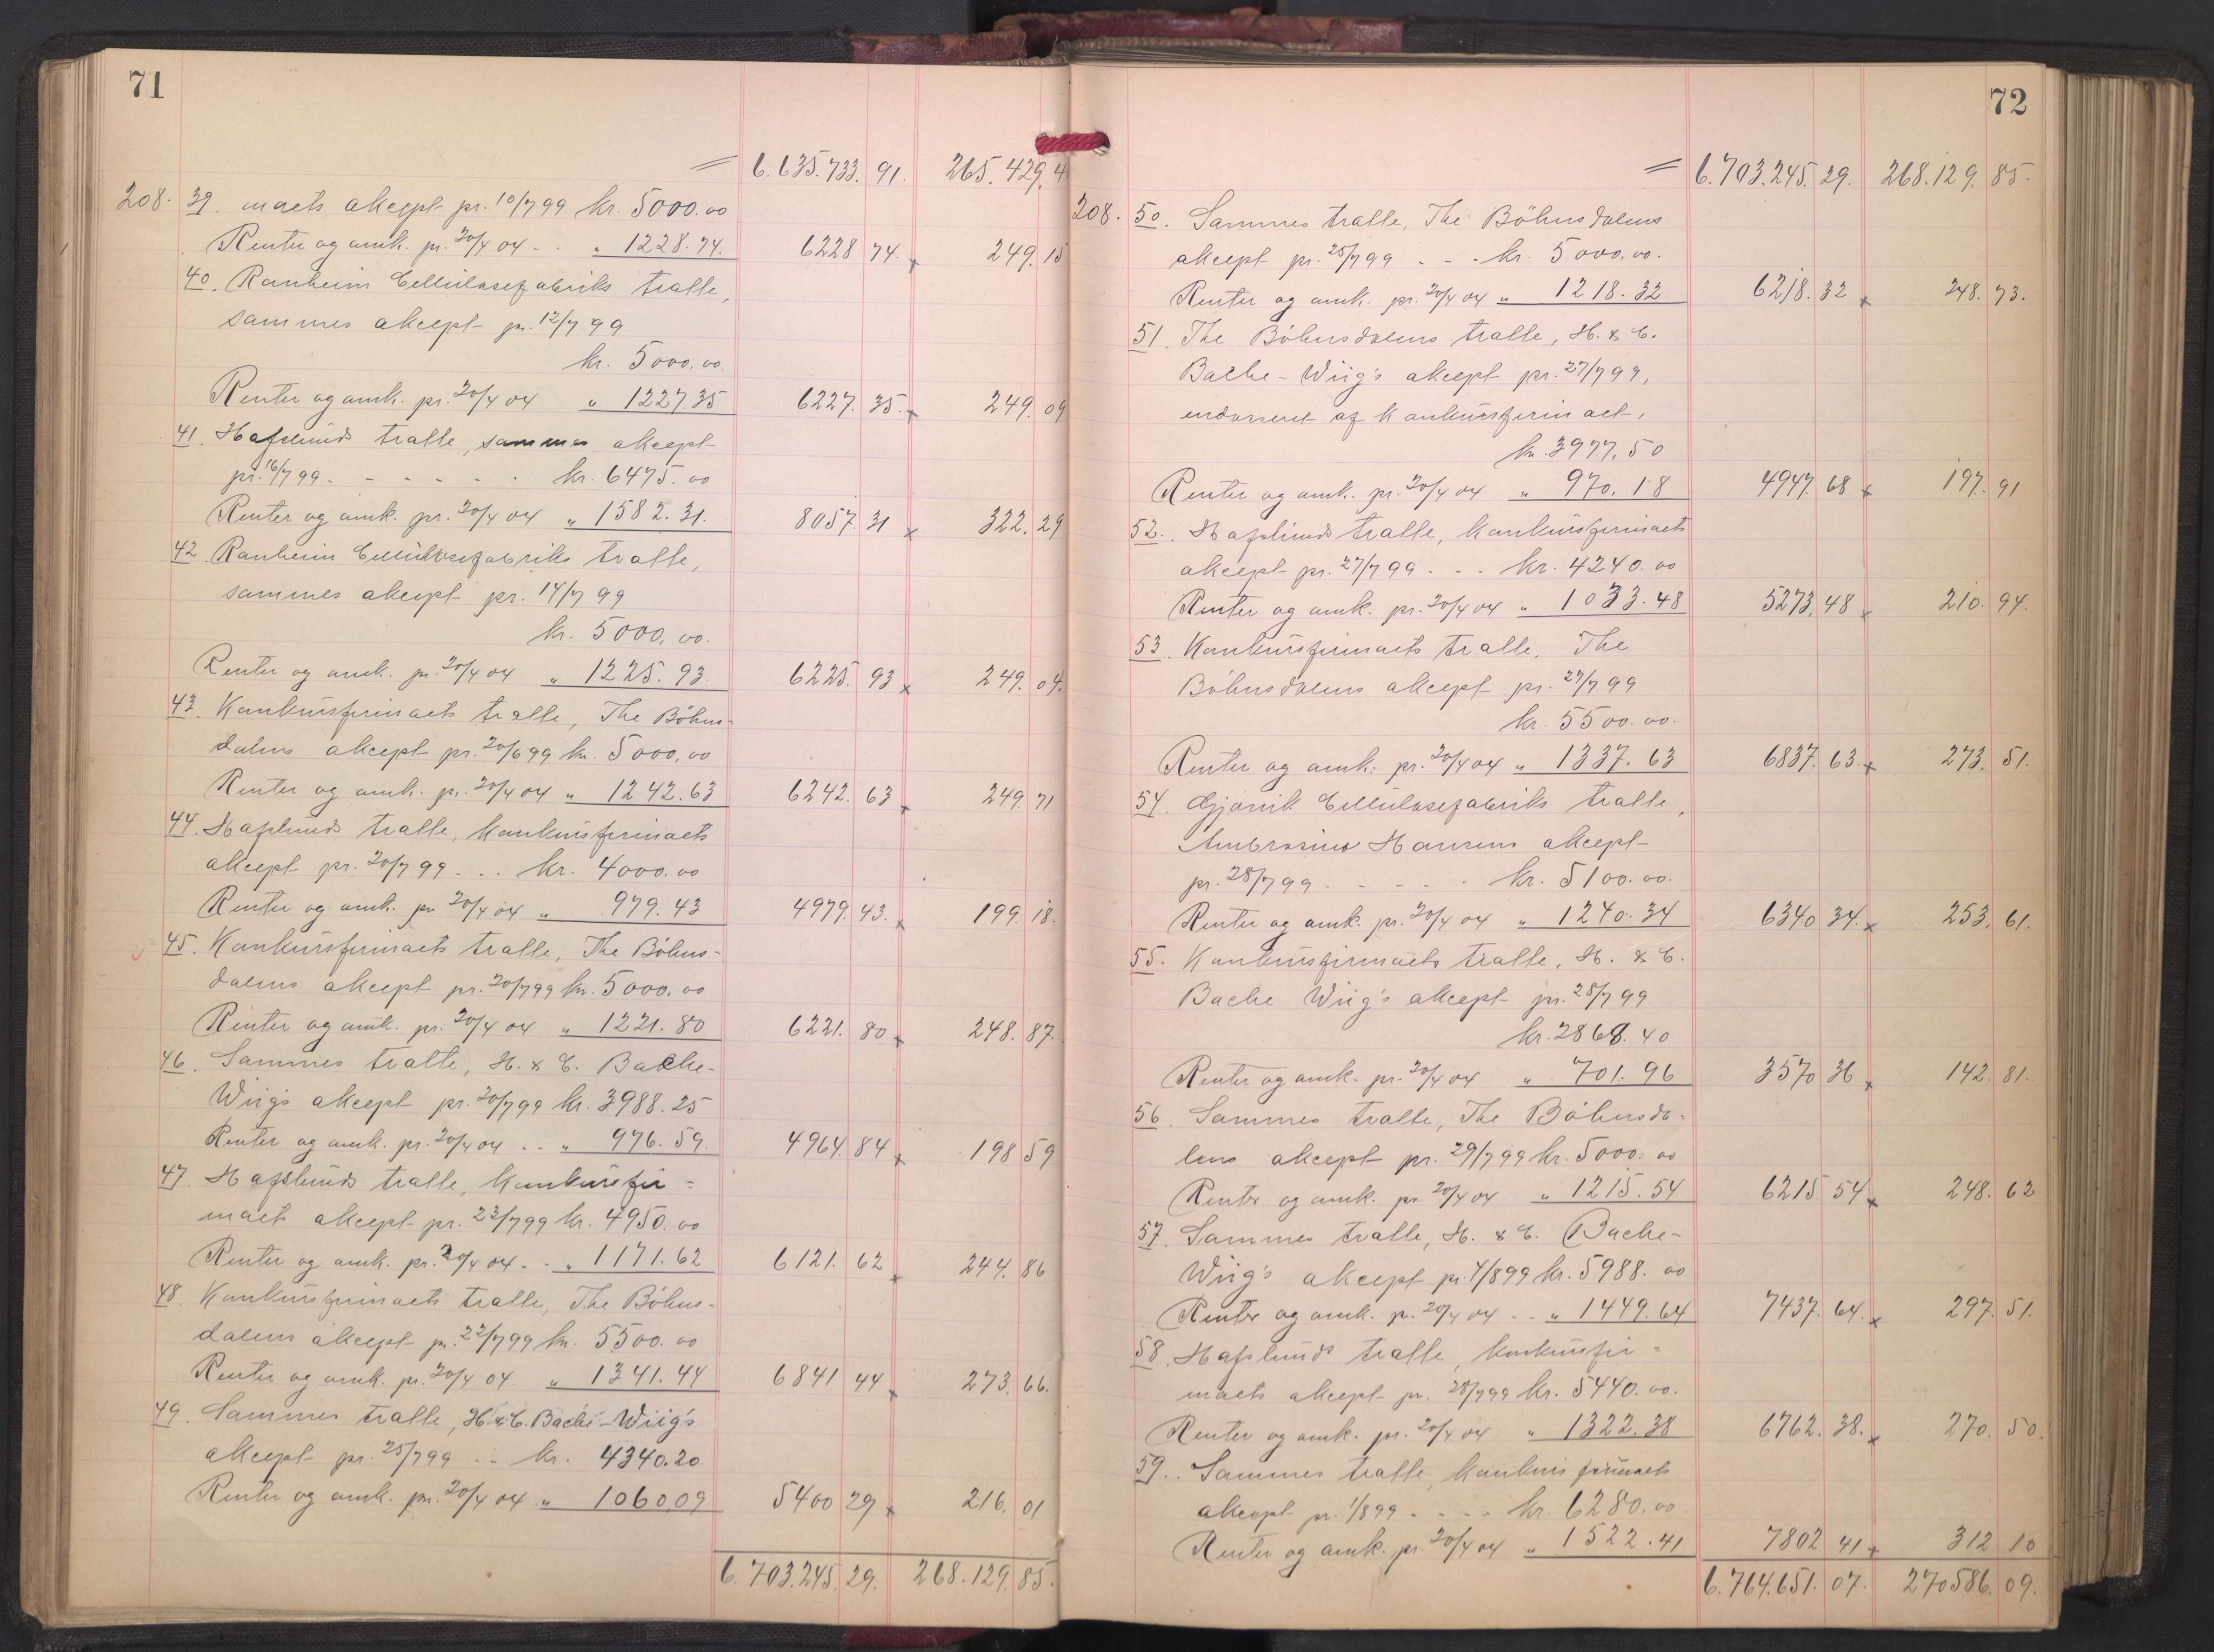 71
= 6.635.733. 91. 265.429.4
208. 39. maets akcept pr. 10/7 99 kr. 5000.00
Renter og omk. pr. 20/4 04 - . " 1228.74. 6228 74. x 249. 15
40. Ranheim Cellulosefabriks tratte,
sammes akcept pr. 12/7 99
kr. 5000.00.
Renter og omk. pr. 20/4 04 " 1227.35 6227. 35. x 249. 09
41. Hafslunds tratte, sammes akcept
pr. 16/7 99. - - - - . kr. 6475.00
Renter og omk. pr. 20/4 04 " 1582.31. 8057. 31 x 322. 29
42. Ranheim Cellulosefabriks tratte,
sammes akcept pr. 14/7 99
kr. 5000.00.
Renter og omk. pr. 20/4 04 " 1225.93. 6225. 93 x 249. 04.
43. Konkursfirmaets tratte, The Böhns-
dalens akcept pr. 20/6 99 kr. 5000,00
Renter og omk. pr. 20/4 04 " 1242.63 6242. 63 x 249 71
44. Hafslunds tratte, konkursfirmaets
akcept pr. 20/7 99 - . . kr. 4000.00
Renter og omk. pr. 20/4 04 " 979.43 4979. 43. x 199. 18.
45. Konkursfirmaets tratte, The Böhns-
dalens akcept pr. 20/7 99 kr. 5000.00
Renter og omk. pr. 20/4 04 " 1221.80 6221. 80 x 248. 87.
46. Sammes tratte, H. & C. Bache-
Wiigs akcept pr. 20/7 99 kr. 3988.25
Renter og omk. pr. 20/4 04 . . " 976.59. 4964. 84 x 198 59
47. Hafslunds tratte, konkursfir=
maets akcept pr. 23/7 99 kr. 4950.00
Renter og omk. pr. 20/4 04 - . " 1171.62 6121. 62 x 244. 86
48. Konkursfirmaets tratte, The Böhns-
dalens akcept pr. 22/7 99 kr. 5500.00
Renter og omk. pr. 20/4 04. " 1341.44 6841 44 x 273. 66.
49. Sammes tratte, H. & C. Bache-Wiig's
akcept pr. 25/7 99 - - kr. 4340.20
Renter og omk. pr. 20/4 04 " 1060,09 5400 29 x 216. 01
6.703.245. 29. 268.129. 85.
72
= 6.703.245. 29. 268.129. 85.
208. 50. Sammes tratte, The Böhnsdalens
akcept pr. 25/7 99 - - . kr. 5000.00.
Renter og omk. pr. 20/4 04 " 1218.32 6218. 32 x 248. 73.
51. The Böhnsdalens tratte, H. & C.
Bache-Wiig's akcept pr. 27/7 99,
endosseret af konkursfirmaet,
kr. 3977.50
Renter og omk. pr. 20/4 04 " 970.18 4947. 68 x 197. 91
52. Hafslunds tratte, konkursfirmaets
akcept pr. 27/7 99 - . - kr. 4240.00
Renter og omk. pr. 20/4 04 " 1033.48 5273. 48 x 210. 94.
53. Konkursfirmaets tratte, The
Böhnsdalens akcept pr. 27/7 99
kr. 5500.00.
Renter og omk. pr. 20/4 04 " 1337.63 6837. 63. x 273. 51.
54. Gjövik Cellulosefabriks tratte,
Ambrosius Hansens akcept
pr. 28/7 99 - - - - - . kr. 5100.00.
Renter og omk. pr. 20/4 04 " 1240.34 6340 34. x 253. 61.
55. Konkursfirmaets tratte, H. & C.
Bache Wiig's akcept pr. 28/7 99
kr. 2868.40
Renter og omk. pr. 20/4 04 " 701.96 3570 36 x 142. 81.
56. Sammes tratte, The Böhnsda-
lens akcept pr. 29/7 99 kr. 5000.00
Renter og omk. pr. 20/4 04 " 1215.54 6215 54 x 248. 62
57. Sammes tratte, H. & C. Bache-
Wiig's akcept pr. 4/8 99 kr. 5988.00
Renter og omk. pr. 20/4 04 . . " 1449.64 7437. 64. x 297. 51.
58. Hafslunds tratte, konkursfir=
maets akcept pr. 28/7 99 kr. 5440.00.
Renter og omk. pr. 20/4 04 " 1322.38 6762. 38. x 270. 50.
59. Sammes tratte, konkursfirmaets
akcept pr. 1/8 99 - - - - kr. 6280.00
Renter og omk. pr. 20/4 04 " 1522.41 7802 41 x 312 10
6.764.651. 07. 270586. 09.